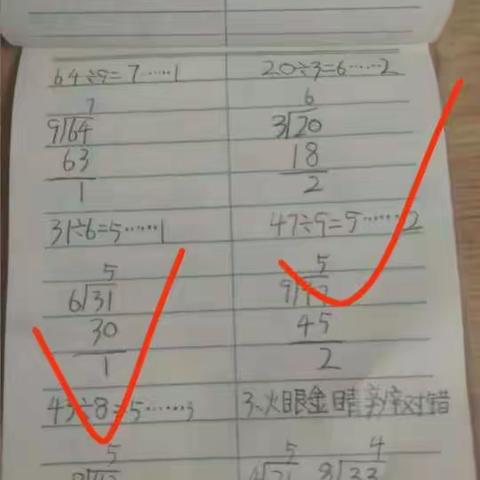 64÷9=7……1
7
9/64
63
1
31÷6=5……1
5
6/31
30
1
43÷8=5……3
5
20÷3=6……2
6
3/20
18
2
47÷9=5……2
5
9/47
45
2
3、火眼金睛 辨对错
5
4
8/33